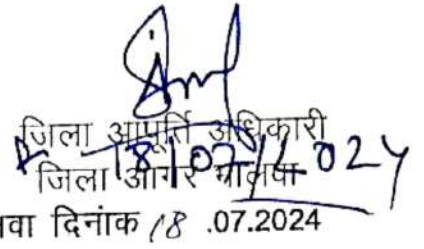 जिला आपूर्ति अधिकारी
18/07/2024
जिला आगर मालवा
वा दिनांक 18 .07.2024